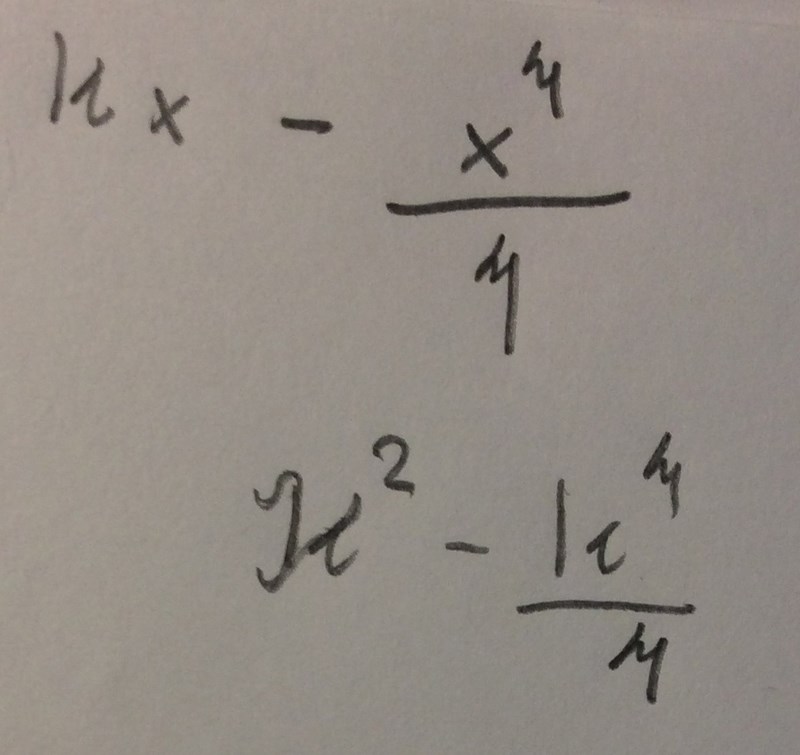 kx - x^4/4
k^2 - k^4/4